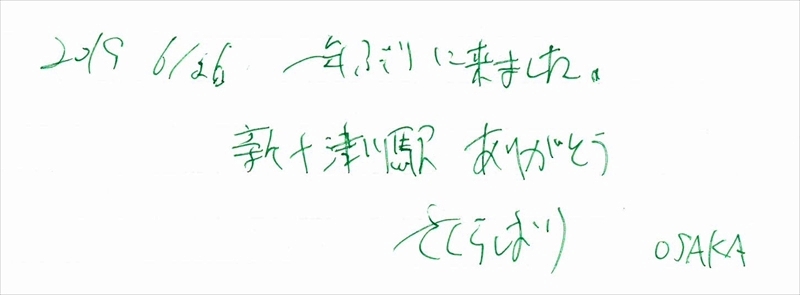 2019 6/26 一年ぶりに来ました。
新十津川駅 ありがとう
さくらばり OSAKA